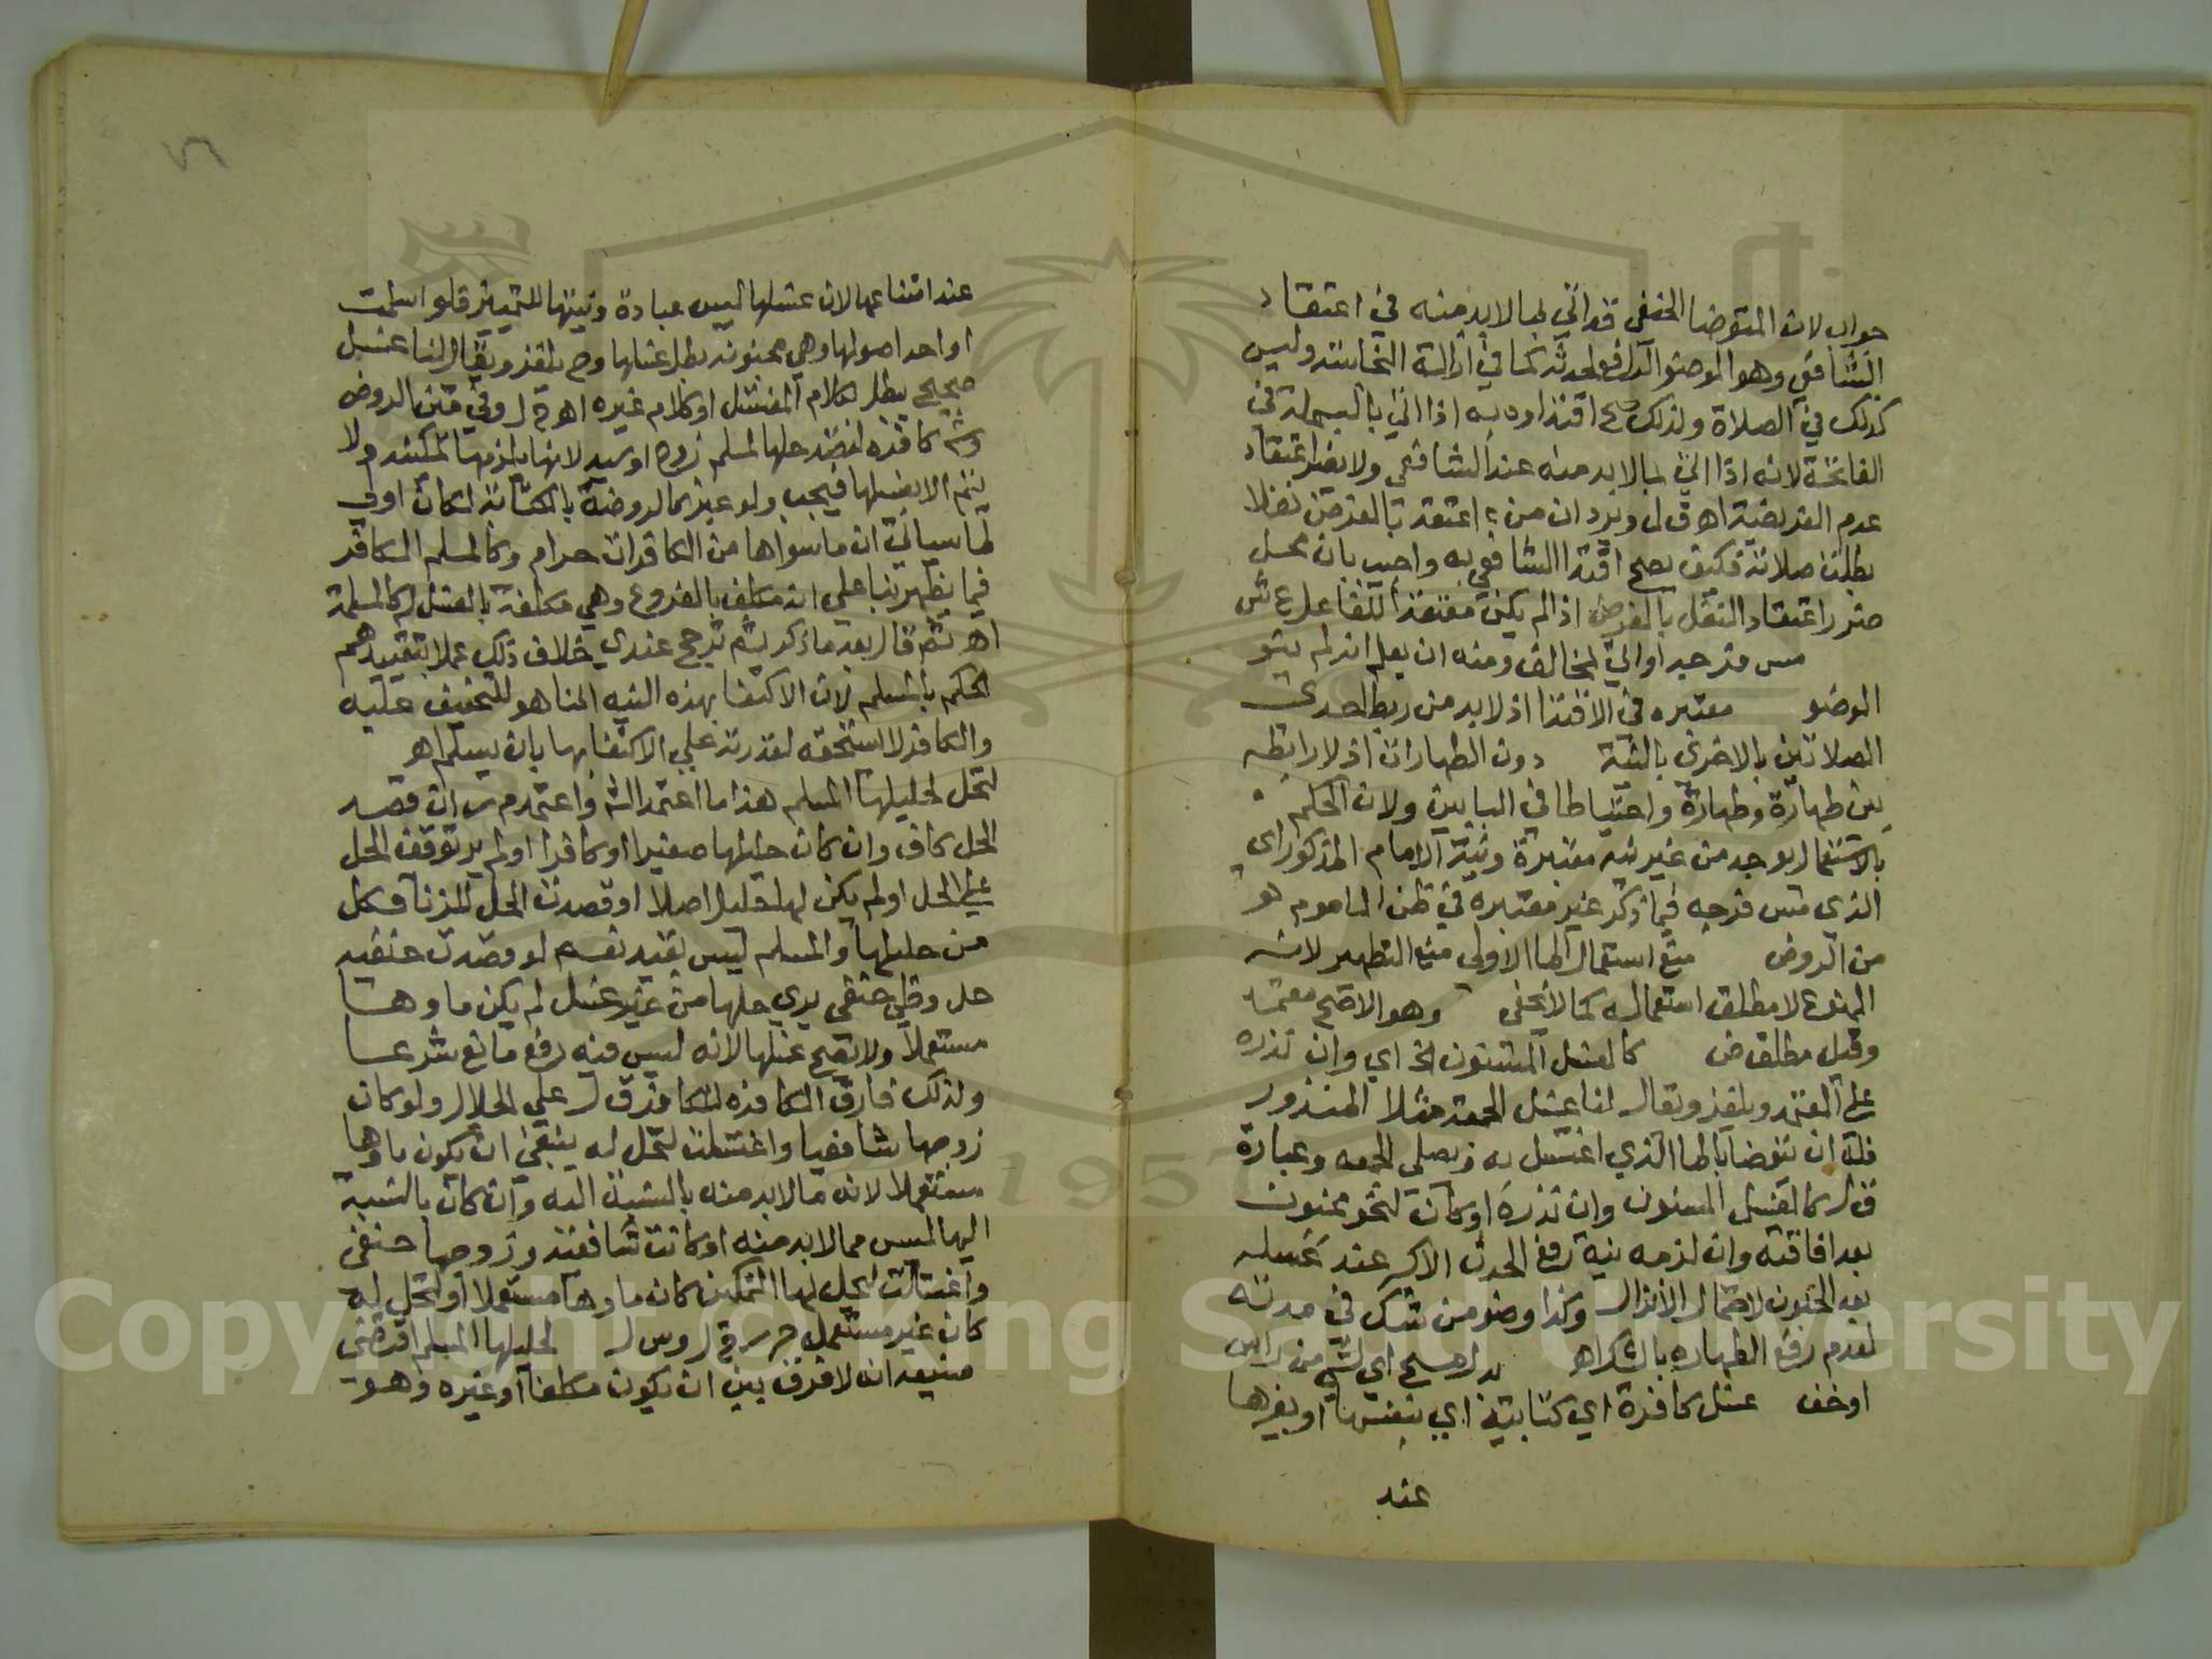 جواب لان المتوضا الحنفي قد اتي بما لابد منه في اعتقاد
الشافعي وهو الوضو الرافع لحدثه كما في ازالة النجاسة وليس
كذلك في الصلاة ولذلك صح اقتداوه به اذا اتي بالبسملة في
الفاتحة لانه اذا اتي بما لابد منه عند الشافعي ولا يضر اعتقاد
عدم الفرضية اهـ ق ل ويرد ان من اعتقد بالفرض نفلا
بطلت صلاته فكيف يصح اقتدا الشافعي به واجيب بان محل
ضرر اعتقاد النفل بالفرض اذا لم يكن معتقدا للفاعل ع ش
مس فرجه او اتي لمخالف ومنه ان يعلم انه لم ينو
الوضو معتبره في الاقتدا اذ لابد من ربط احدى
الصلاتين بالاخرى بالنية دون الطهارات اذ لا رابطه
بين طهارة وطهارة واحتياطا في البابين ولان الحكم
بالاستعمال يوجد من غير نيه معتبرة ونية الامام المذكور اي
الذي مس فرجه فيما ذكر غير معتبره في ظن الماموم هو
من الروض منع استعمال الما الاولى منع التطهير لانه
الممنوع لا مطلق استعماله كما لا يخفى وهو الاصح معتمد
وقيل مطلق ض كالغسل المسنون الخ اي وان نذره
على المعتمد ويلغز ويقال لنا غسل الجمعة مثلا المنذور
فله ان يتوضا بالما الذي اغتسل به ويصلي الجمعه وعبارة
ق ل كالغسل المسنون وان نذره او كان لنحو مجنون
بعد افاقته وان لزمه نية رفع الحدث الاكبر عند غسله
بعد الجنون لاحتمال الانزال وكذا وضو من شك في حدثه
لعدم رفع الطهاره بالشك اهـ بدل مسح اي لشي من راس
او خف غسل كافرة اي كتابية اي بنفسها او بغيرها
عند
عند امتناعها لان غسلها ليس عبادة ونيتها للتمييز فلو اسلمت
او احد اصولها وهي مجنونه بطل غسلها وح يلغز ويقال لنا غسل
صحيح يبطل بكلام المغتسل او كلام غيره اهـ ق ل وفي متن الروض
وغسل كافره لقصد حلها لمسلم زوج او سيد لانها يلزمها تمكينه ولا
يتم الا بغسلها فيجب ولو عبر كالروضة بالكتابية لكان اولى
لما سياتي ان ما سواها من الكافرات حرام وكالمسلم الكافر
فيما يظهر بنا علي انه مكلف بالفروع وهي مكلفة بالغسل له كالمسلمة
اهـ ثم قال بعد ما ذكر ثم ترجح عندي خلاف ذلك عملا بتقييدهم
الحكم بالمسلم لان الاكتفا بهذه النيه انما هو للتخفيف عليه
والكافر لا يستحقه لقدرته علي الاكتفا بها بان يسلم اهـ
لتحل لحليلها المسلم هذا ما اعتمد الش واعتمد م ر ان قصد
الحل كاف وان كان حليلها صغيرا او كافرا او لم ير توقف الحل
علي الحل او لم يكن لها حليل اصلا او قصدت الحل للزنا فكل
من حليلها والمسلم ليس بقيد نعم لو قصدت حنفيه
حل وطي حنفي يري حلها من غير غسل لم يكن ماوها
مستعملا ولا يصح غسلها لانه ليس فيه رفع مانع شرعا
ولذلك فارق الكافره للكافر ق ل علي الجلال ولو كان
زوجها شافعيا واغتسلت لتحل له ينبغي ان يكون ماوها
مستعملا لانه مما لابد منه بالنسبة اليه وان كان بالنسبة
اليها ليس مما لابد منه او كانت شافعية وزوجها حنفي
واغتسلت ليحل لها التمكين كان ماوها مستعملا او لتحل له
كان غير مستعمل م ر ق ل وس ل لحليلها المسلم اقتضي
صنيعه انه لا فرق بين ان يكون مكلفا او غيره وهو